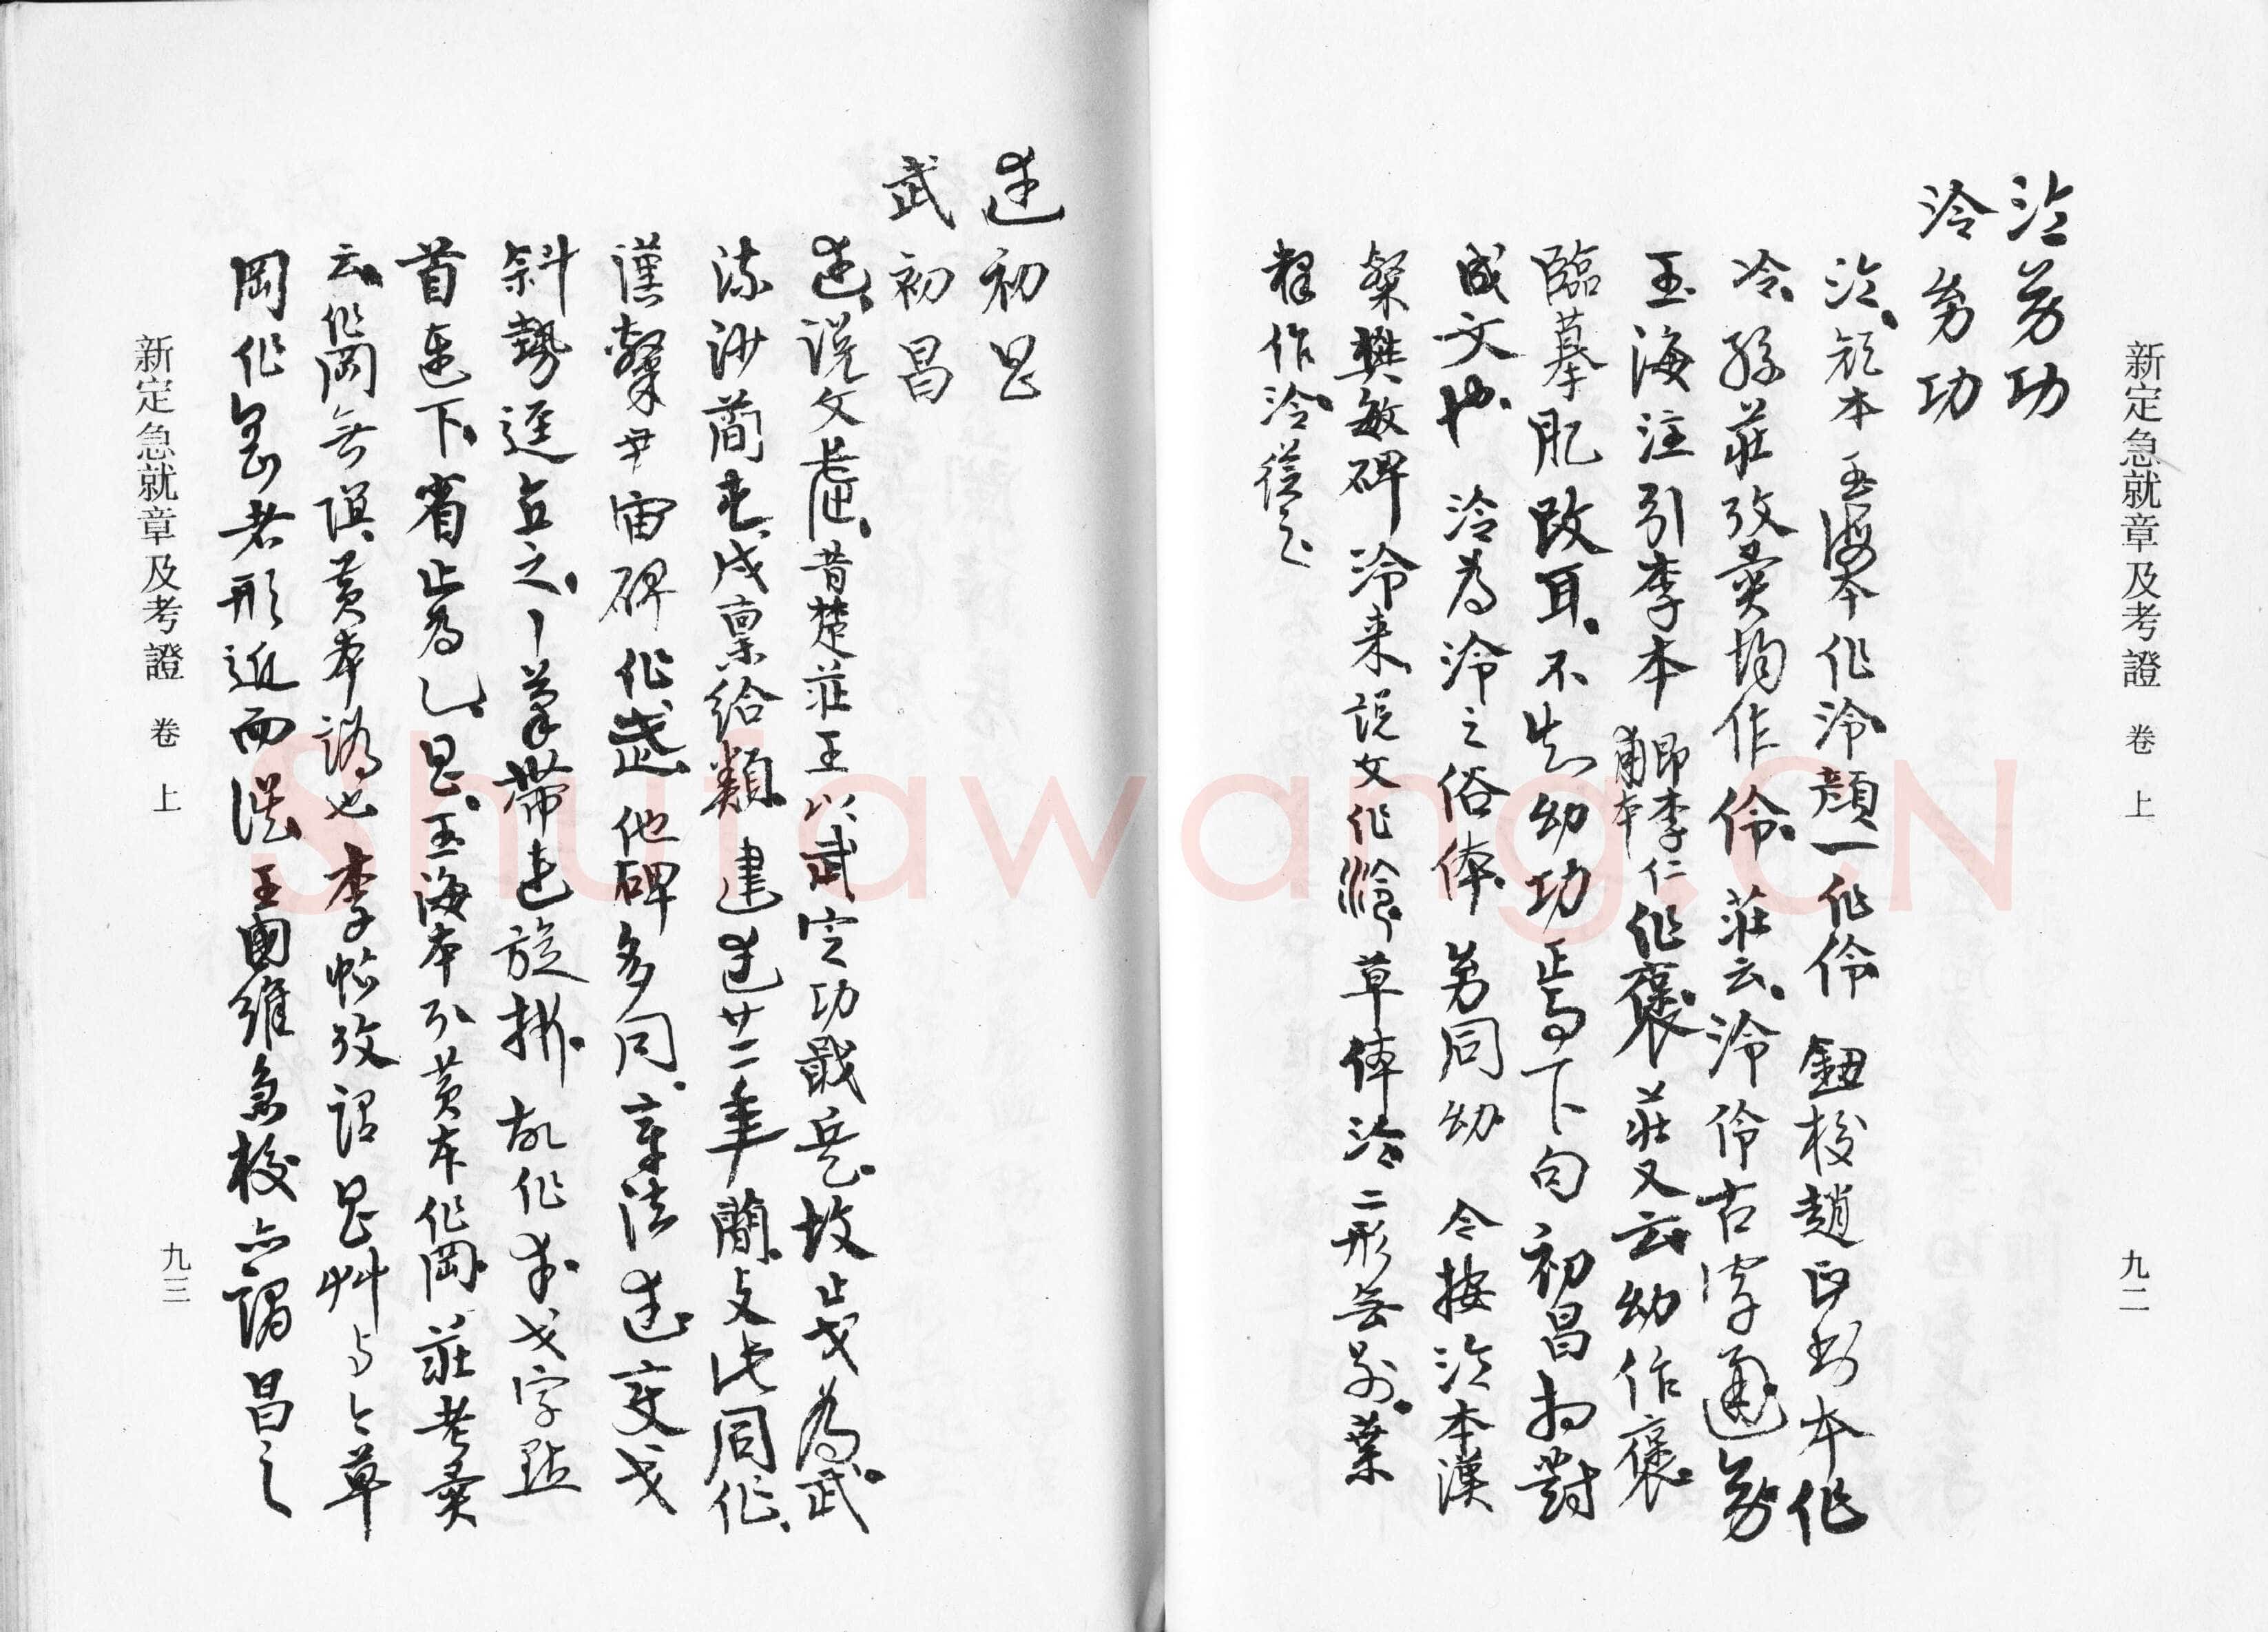 新定急就章及考證 卷上
九二
泠幼功
泠幼功
泠、顏本、玉海本作泠、顏一作伶 鈕校趙正書本作
冷、孫莊攷異均作伶、莊云、泠伶古字通 幼
玉海注引李本 即李仁甫本 作褒、莊又云幼作褒、
臨摹肊改耳、不與幼功焉下句初昌相對
成文也、泠為泠之俗体、 同幼 今按泠本漢
樊敏碑泠来、說文作泠、草俾泠、二形無別、葉
釋作泠、從之
武初昌
武初昌
武、說文武、昔楚莊王以武定功戢兵、故止戈為武、
流沙簡屯戍稟給類、建武廿二年簡、文此同作、
漢韓尹宙碑作武 他碑多同、章法武变戈
斜勢逕直之、丨筆帶走旋掠、故作 戈字點
首連下、省止為乙、昌、玉海本引黃本作岡、莊考異
云、作岡誤、黃本譌也 李帖攷謂昌艸与 草
岡作 者形近而誤 王國維急校亦謂昌之
新定急就章及考證 卷上
九三